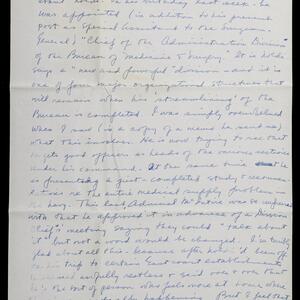 was appointed (in addition to his present
post as Special Assistant to the Surgeon
General) "Chief of the Administration Division
of the Bureau of Medicine & Surgery." It is
a "new and powerful division" and it is
one of four major organizational structures that
will remain when his "streamlining" of the
Bureau is completed. I was simply overwhelmed
when I saw (in a copy of a memo he sent me)
what this involves. He is now trying to
get good officers as heads of the various sections
under his command. At the same time he
is presenting a giant completed study &
on the entire medical supply problem in
the Navy. This last, Admiral was so impressed
with that he approved it in advance of a Division
Chiefs' meeting saying they could "talk about
it" but not a word would be changed. I'm
glad about all this because after he'd been off
on his trip to certain East coast establishments
he seemed awfully restless & said over & over that
he's the sort of person who feels more at home when
happening. But I feel that